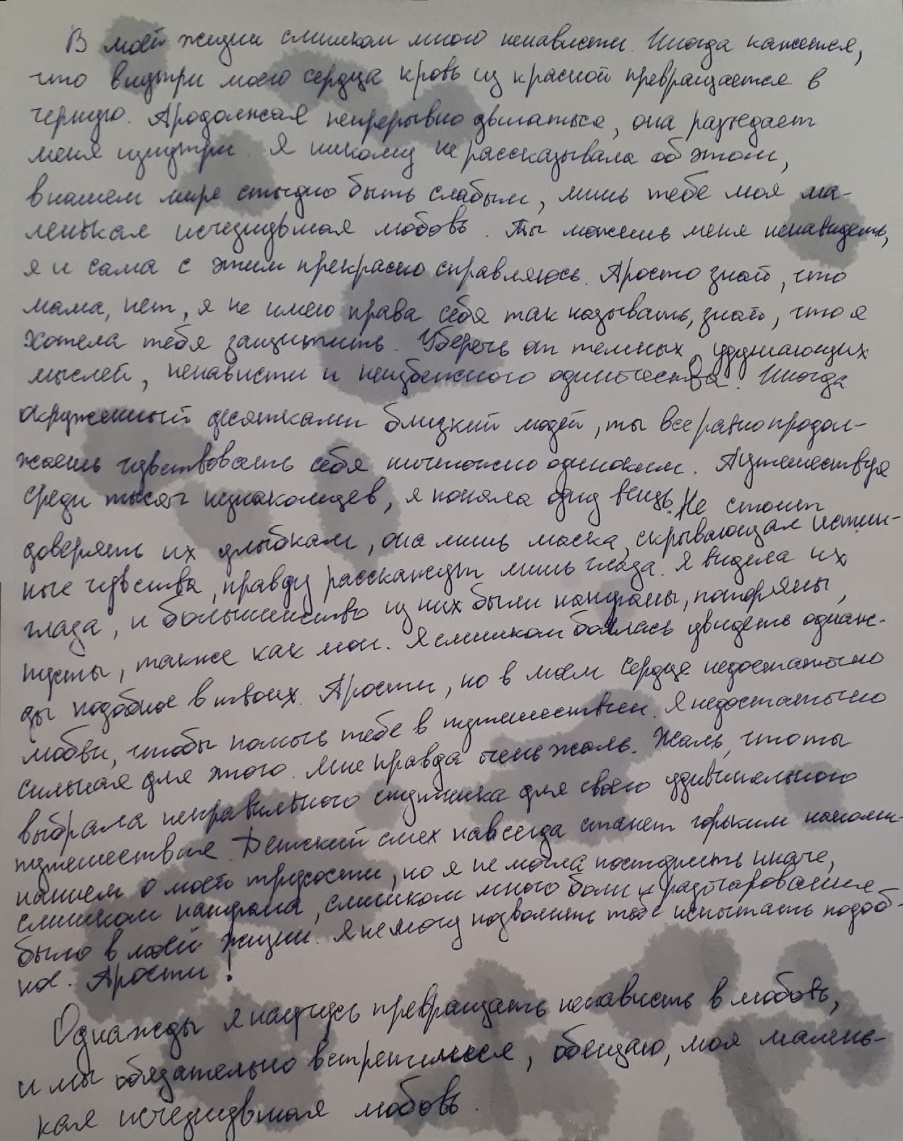 В моей жизни слишком много ненависти. Иногда кажется,
что внутри моего сердца кровь из красной превращается в
черную. Продолжая непрерывно двигаться, она разъедает
меня изнутри. Я никому не рассказывала об этом,
в нашем мире стыдно быть слабым, лишь тебе моя ма-
ленькая исчезнувшая любовь. Ты можешь меня ненавидеть,
я и сама с этим прекрасно справляюсь. Просто знай, что
мама, нет, я не имею права себя так называть, знай, что я
хотела тебя защитить. Уберечь от темных, удушающих
мыслей, ненависти и неизбежного одиночества. Иногда
окруженный десятками близкий людей, ты все равно продол-
жаешь чувствовать себя ничтожно одиноким. Путешествуя
среди тысяч незнакомцев, я поняла одну вещь. Не стоит
доверять их улыбкам, она лишь маска, скрывающая истин-
ные чувства, правду расскажут лишь глаза. Я видела их
глаза, и большинство из них были напуганы, потеряны,
пусты, также как мои. Я слишком боялась увидеть однаж-
ды подобное в твоих. Прости, но в моем сердце недостаточно
любви, чтобы помочь тебе в путешествии. Я недостаточно
сильная для этого. Мне правда очень жаль. Жаль, что ты
выбрала неправильного спутника для своего удивительного
путешествия. Детский смех навсегда станет горьким напоми-
нанием о моей трусости, но я не могла поступить иначе,
слишком напугана, слишком много боли и разочарования
было в моей жизни. Я не могу позволить тебе испытать подоб-
ное. Прости!
Однажды я научусь превращать ненависть в любовь,
и мы обязательно встретимся, обещаю, моя малень-
кая исчезнувшая любовь.